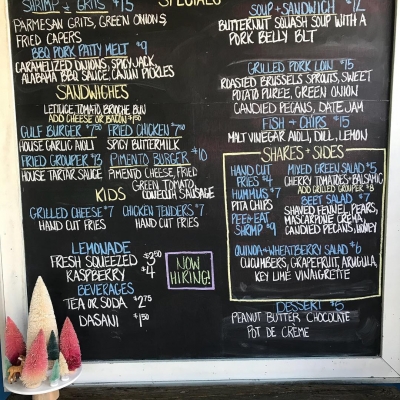 SPECIALS
SHRIMP & GRITS $15
PARMESAN GRITS, GREEN ONIONS,
FRIED CAPERS
BBQ PORK PATTY MELT $9
CARAMELIZED ONIONS, SPICY JACK,
ALABAMA BBQ SAUCE, CAJUN PICKLES
SANDWICHES
LETTUCE, TOMATO, BRIOCHE BUN
ADD CHEESE OR BACON $1.50
GULF BURGER $7.50
HOUSE GARLIC AIOLI
FRIED CHICKEN $7.50
SPICY BUTTERMILK
FRIED GROUPER $13
HOUSE TARTAR SAUCE
PIMENTO BURGER $10
PIMENTO CHEESE, FRIED
GREEN TOMATO,
CONECUH SAUSAGE
KIDS
GRILLED CHEESE $7
HAND CUT FRIES
CHICKEN TENDERS $7
HAND CUT FRIES
LEMONADE
FRESH SQUEEZED $3.50
RASPBERRY $4
BEVERAGES
TEA OR SODA $2.75
DASANI $1.50
NOW
HIRING!
SOUP + SANDWICH $12
BUTTERNUT SQUASH SOUP WITH A
PORK BELLY BLT
GRILLED PORK LOIN $15
ROASTED BRUSSELS SPROUTS, SWEET
POTATO PUREE, GREEN ONION
CANDIED PECANS, DATE JAM
FISH + CHIPS $15
MALT VINEGAR AIOLI, DILL, LEMON
SHARES + SIDES
HAND CUT
FRIES $4
HUMMUS $7
PITA CHIPS
PEEL + EAT
SHRIMP $9
MIXED GREEN SALAD $5
CHERRY TOMATOES + BALSAMIC
ADD GRILLED GROUPER $8
BEET SALAD $7
SHAVED FENNEL, PEARS,
MASCARPONE CREMA,
CANDIED PECANS, HONEY
QUINOA + WHEATBERRY SALAD $6
CUCUMBERS, GRAPEFRUIT, ARUGULA,
KEY LIME VINAIGRETTE
DESSERT $5
PEANUT BUTTER CHOCOLATE
POT DE CRÈME